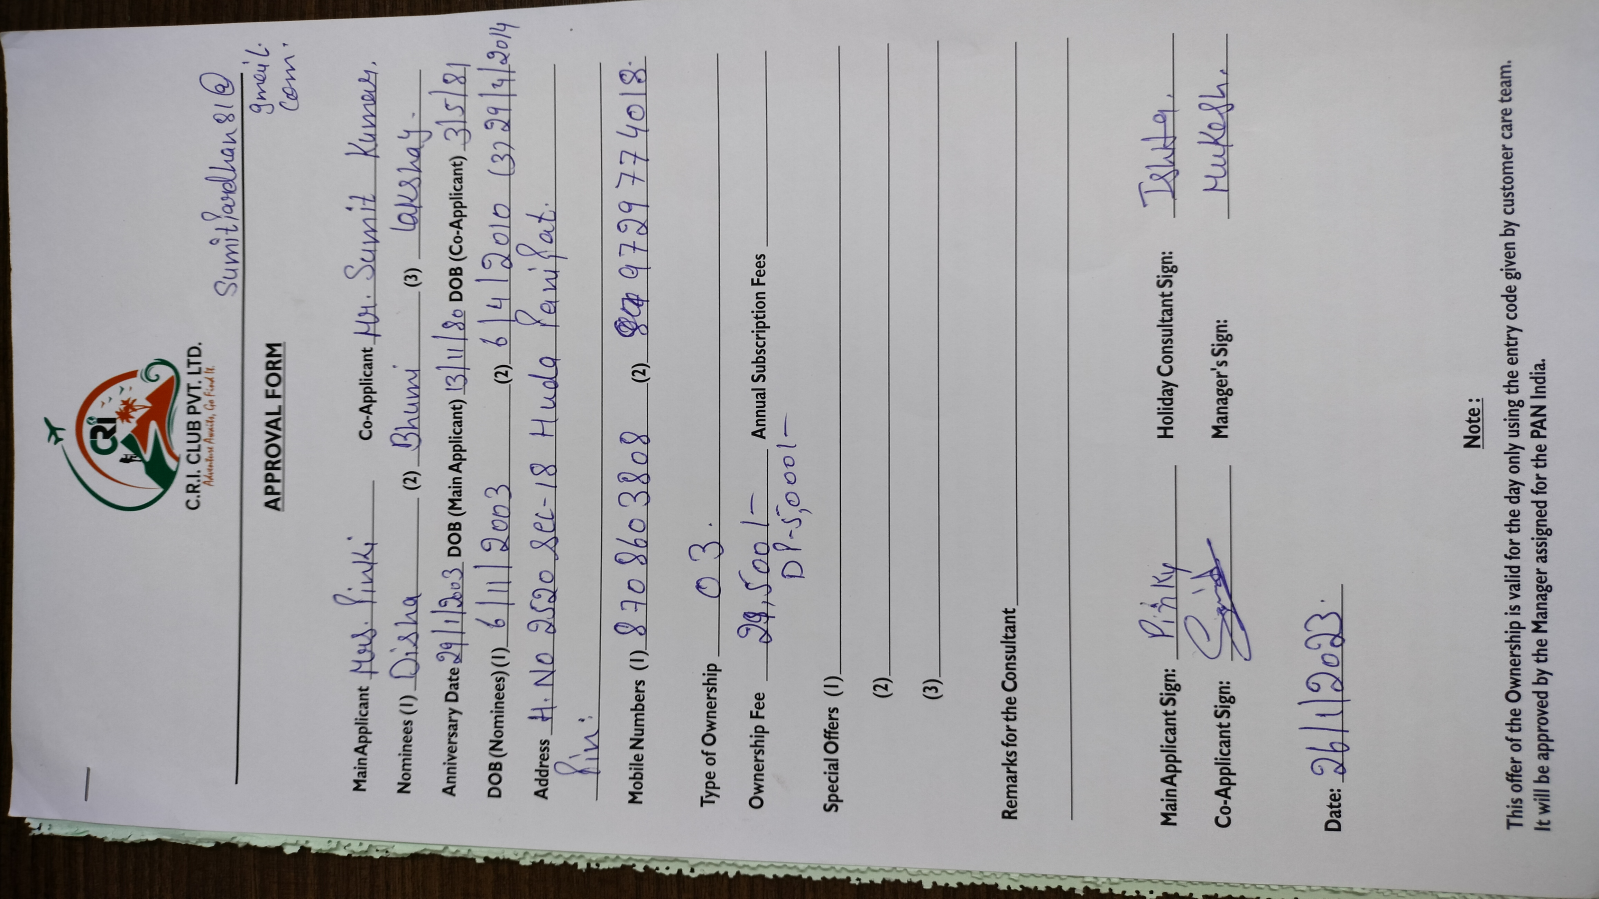 CRI
C.R.I. CLUB PVT. LTD.
Adventure Awaits, Go Find It.
SumitPardhan81@
gmail.
com.
APPROVAL FORM
Main Applicant Mrs. Pinki Co-Applicant Mr. Sumit Kumar.
Nominees (1) Disha (2) Bhumi (3) lakshay.
Anniversary Date 29/1/2003 DOB (Main Applicant) 13/11/80 DOB (Co-Applicant) 3/5/81
DOB (Nominees) (1) 6/11/2003 (2) 6/4/2010 (3) 29/4/2014
Address H.NO 2520 Sec-18 Huda Panipat.
Pin:
Mobile Numbers (1) 8708603808 (2) 9729774018.
Type of Ownership 03.
Ownership Fee 29,500/- Annual Subscription Fees
DP-5,000/-
Special Offers (1)
(2)
(3)
Remarks for the Consultant
Main Applicant Sign: Pinky Holiday Consultant Sign: Ishita.
Co-Applicant Sign: Manager's Sign: Mukesh.
Date: 26/1/2023.
Note :
This offer of the Ownership is valid for the day only using the entry code given by customer care team.
It will be approved by the Manager assigned for the PAN India.